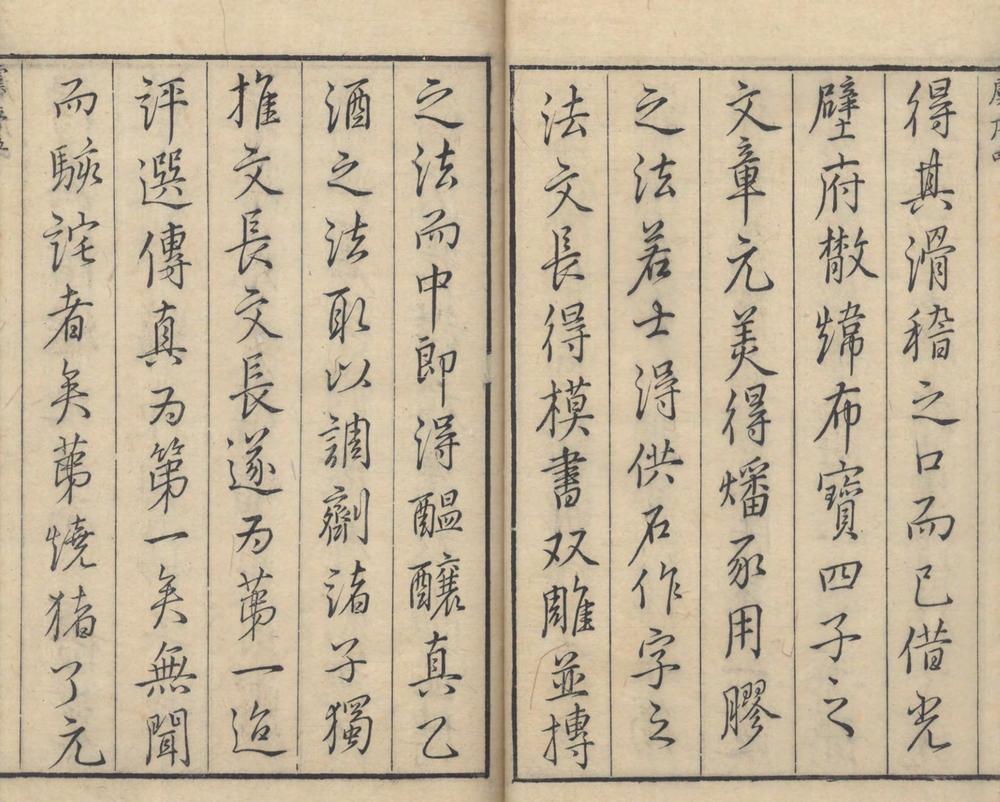 得其滑稽之口而已借光
壁府散煒布寶四子之
文章元美得燔豕用膠
之法若士得供石作字之
法文長得模書双雕並摶
之法而中郎得醖釀真乙
酒之法取以調劑諸子獨
推文長文長遂为第一迨
評選傳真为第一矣無聞
而駭詫者矣苐燒猪了元